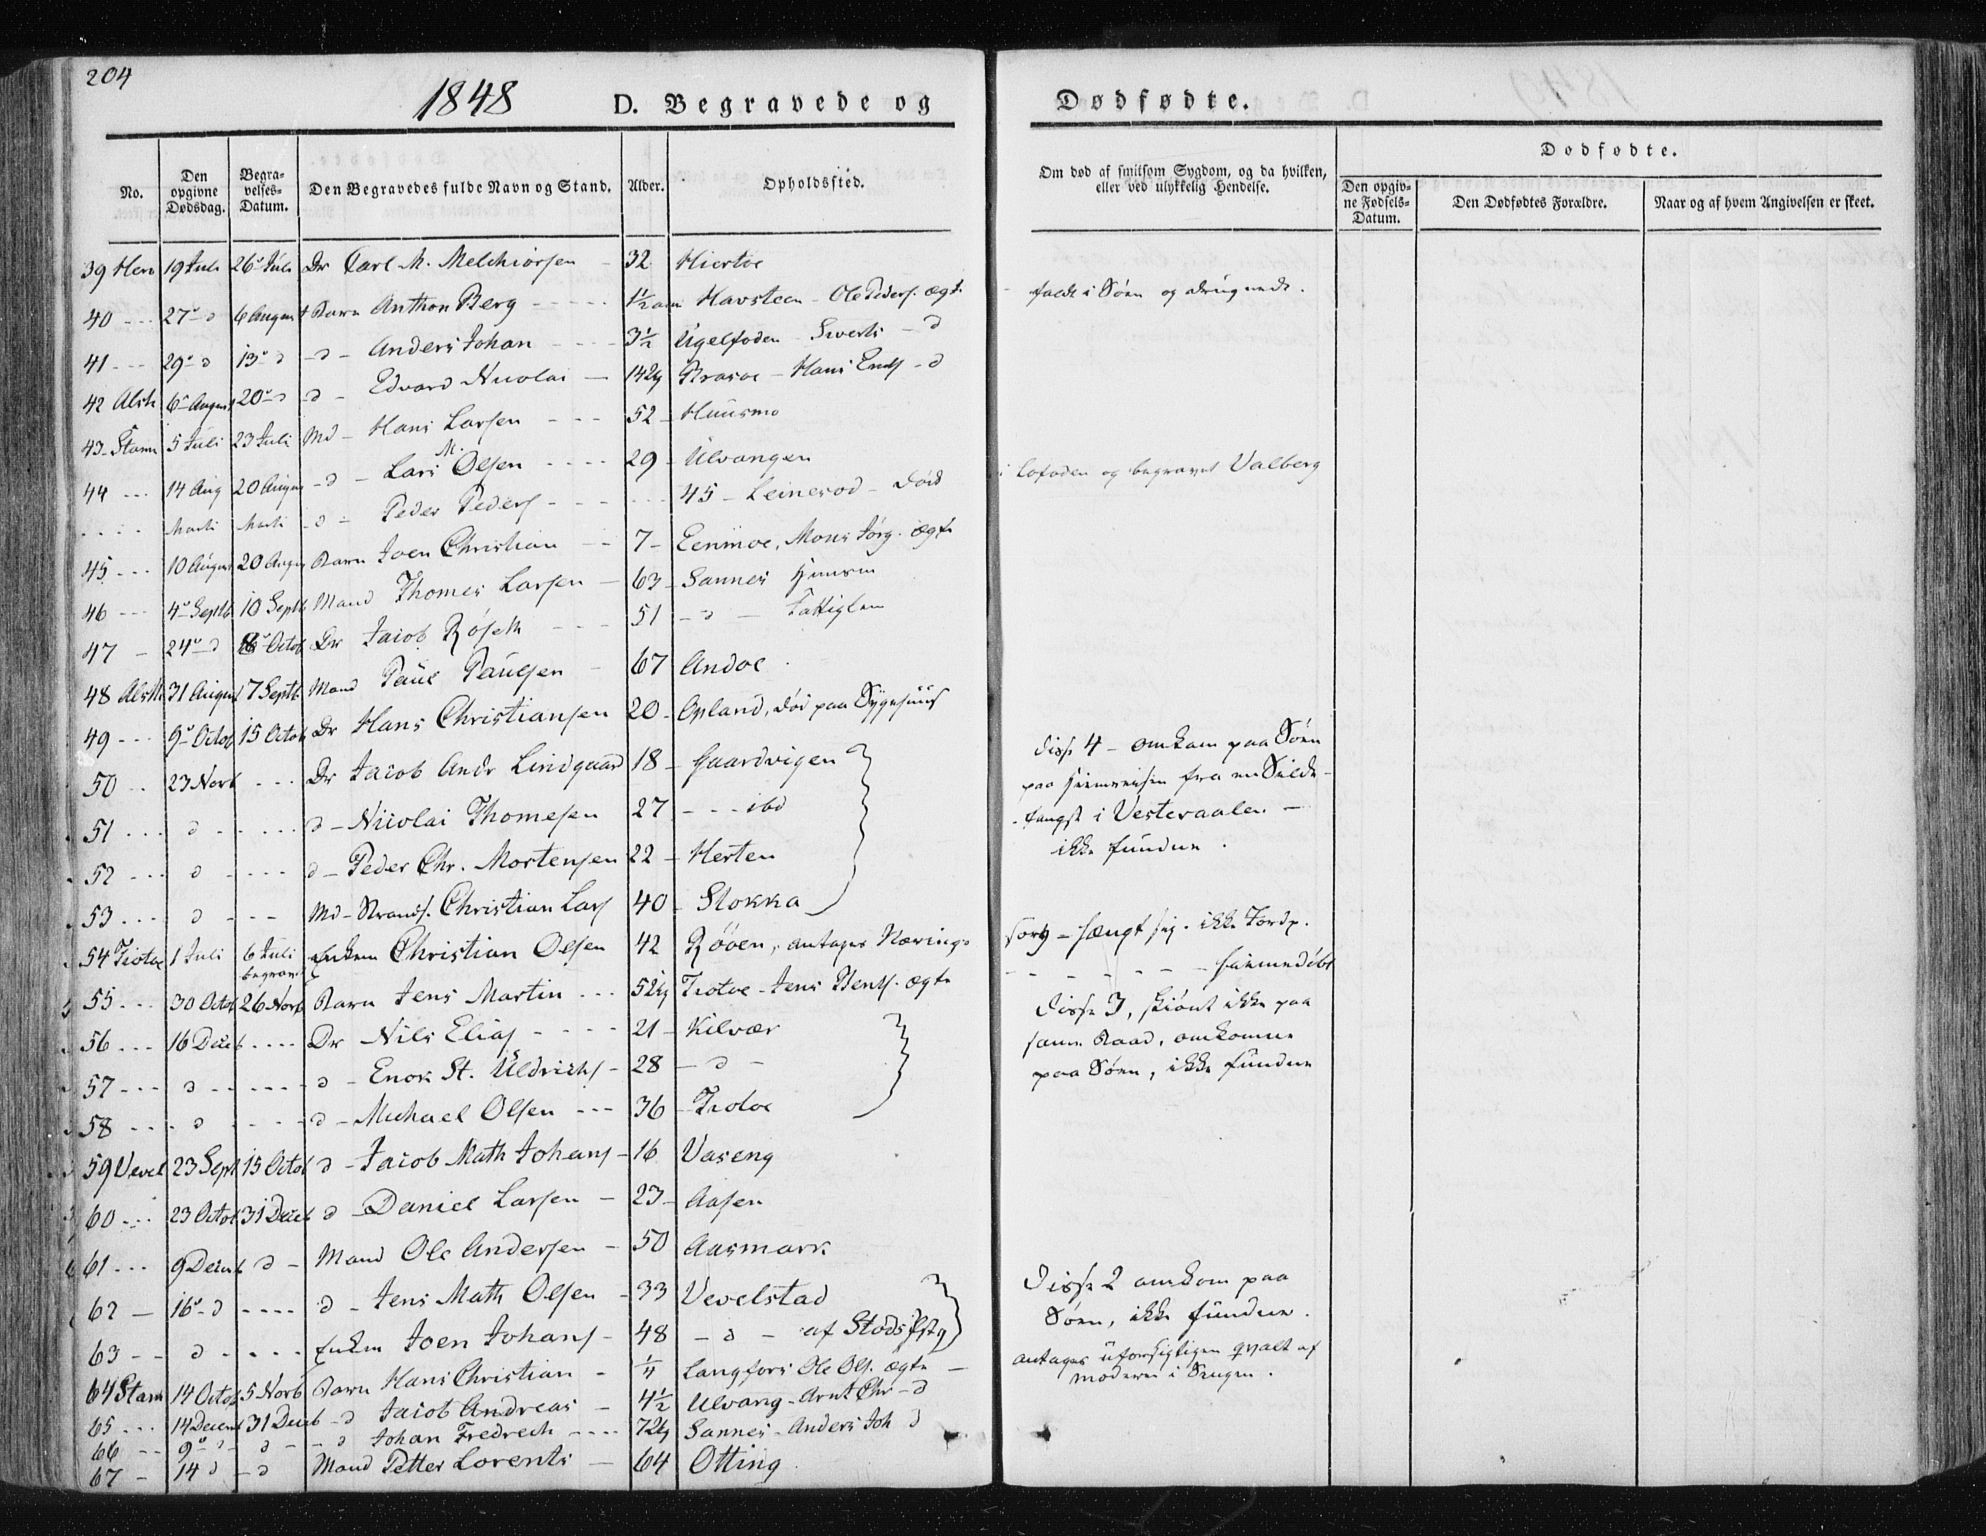 204
1848
D. Begravede og
Dødfødte.
No.
Den opgivne Dødsdag.
Begravelses-Datum.
Den Begravedes fulde Navn og Stand.
Alder.
Opholdssted.
Om død af smitsom Sygdom, og da hvilken, eller ved ulykkelig Hendelse.
Dødfødte.
Den opgivne Fødsels-Datum.
Den Dødfødtes Forældre.
Naar og af hvem Angivelsen er skeet.
39 Hero 19 Juli 26 Juli Dr Carl M. Melchiorsen - 32
40 --- 27 d 6 August Barn Anthon Berg ---- 1½ Havsteen - Ole Peders. ægte faldt i Søen og druknede.
41 --- 29 d 13 d - d - Anders Johan --- 3½ Sivert - d
42 Alst 6 August 20 d d - Edvard Nicolai - 14 Hans - d
43 - Stamn 5 Juli 23 Juli Md - Hans Larsen --- 52 - Huusmo
44 --- 14 Aug 20 August - d - Lars M. Olsen ---- 29 - Ulvangen
.... Marti Marti - d - Peder Peders --- 45 - Leinesod - død i Lofoden og begravet Valberg
45 --- 10 August 20 August Barn Joen Christian -- 7 - Mons Jørg. ægte
46 --- 4 Septb 10 Septb Mand Thomes Larsen - 63 - Sannes
47 - 24 d 8 Octob Dr Jacob --- 51 - d -
48 Alst 31 August 17 Septb Mand Paul Paulsen - 67 Andoe
49 --- 9 Octob 15 Octob Dr Hans Christiansen 20 - Opland, død paa Sygehuus
50 .. 23 Novb --- Dr Jacob Andr Lindgaard 18 - Gaardvigen
51 --- d ---- d - Nicolai Thomesen 27 --- ibd
52 --- d ---- d - Peder Chr. Mortensen 22 - Hesten
53 --- d --- Md - Strands. Christian Lars 40 - Stokka
disse 4 - omkom paa Søen
paa Hjemreisen fra en Silde-
fangst i Vesteraalen -
ikke fundne.
54 Tiotøe 1 Juli 6 Juli begravet Enkem Christian Olsen 42 Røøen, antages Nærings-
sorg - hængt sig. ikke Jordp.
55 --- 30 Octob 26 Novb Barn Jens Martin --- 5 Tiotøe - Jens Bents. ægte ---- hjemmedøbt
56 --- 16 Decb ---- Dr Nils Elias ---- 21 - Kilvær
57 --- d ----- d - Enok St. Uldrichs - 28 - d -
58 --- d ---- d - Michael Olsen --- 36 - Tiotøe
disse 3, skiønt ikke paa
samme Baad, omkomne
paa Søen, ikke fundne
59 Vevel 23 Sept 15 Octob d - Jacob Math Johans - 16 Vaseng
60 --- 23 Octob 31 Decb d - Daniel Larsen - 23 - Aasen
61 --- 9 Decemb d - Mand Ole Andersen - 50 Aasmark
62 - 16 d ---- d - Jens Math Olsen - 33 Vevelstad
63 -- d ---- Enkm Joen Johans - 48 - d - af Stods Pstg
Disse 2 omkom paa
Søen, ikke fundne.
64 Stamn 14 Octob 5 Novb Barn Hans Christian - ¼ Langfors Ole Ols. ægte -
antages uforsigtigen qvalt af
moderen i Sengen.
65 --- 14 Decemb 31 Decb - d Jacob Andreas - 4½ Ulvang - Arnt Chr - d
66 -- 9 d - d - - d Johan Fredrech ---- 7 Sannes - Anders Joh d
67 - 14 d - d Mand Petter Lorents - 64 Otting